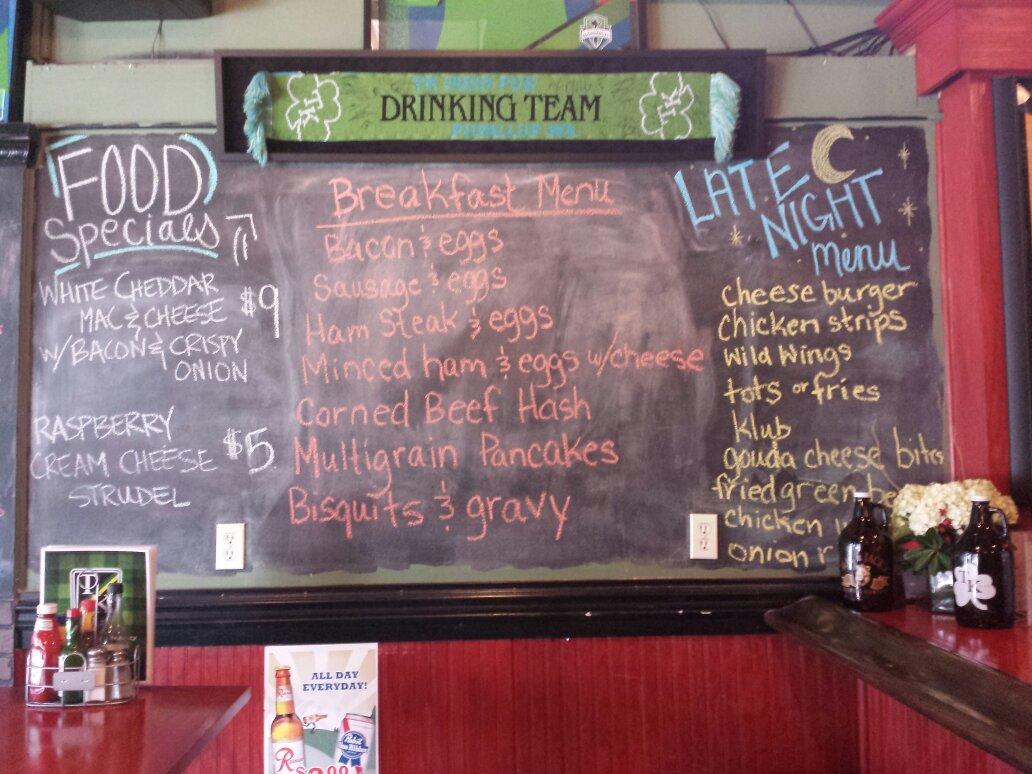 TK IRISH PUB
DRINKING TEAM
PUYALLUP WA
FOOD
Specials
WHITE CHEDDAR
MAC & CHEESE $9
W/BACON & CRISPY
ONION
RASPBERRY
CREAM CHEESE $5
STRUDEL
Breakfast Menu
Bacon & eggs
Sausage & eggs
Ham Steak & eggs
Minced ham & eggs w/cheese
Corned Beef Hash
Multigrain Pancakes
Bisquits & gravy
LATE
NIGHT
menu
cheese burger
chicken strips
wild wings
tots or fries
klub
gouda cheese bites
fried green
chicken
onion
TK
TK
ALL DAY
EVERYDAY!
R
Pabst